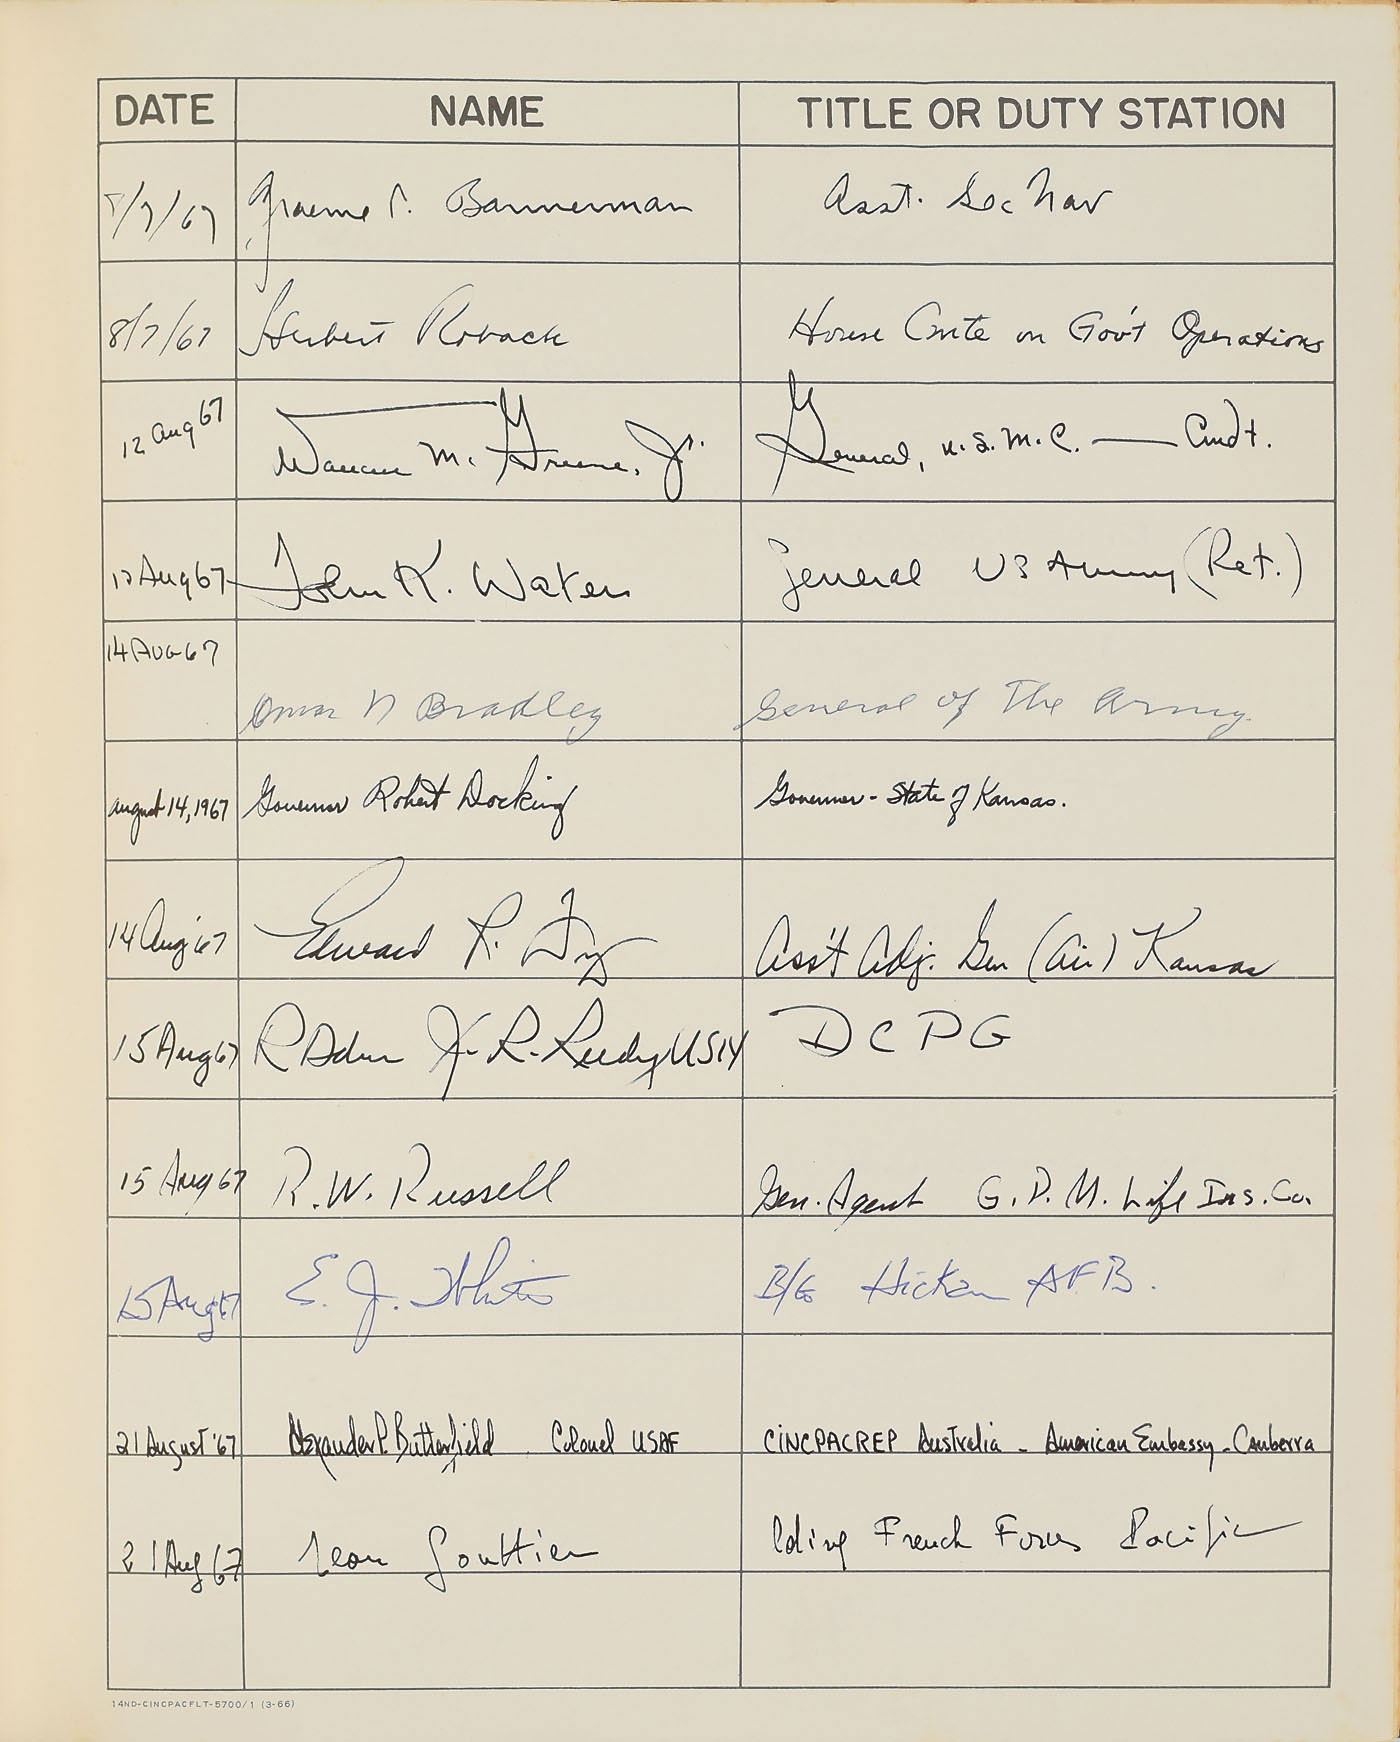 DATE NAME TITLE OR DUTY STATION
8/7/67 Graeme C. Bannerman Asst. Sec Nav
8/7/67 Herbert Roback House Cmte on Gov't Operations
12 Aug 67 Wallace M. Greene, Jr. General, U.S.M.C. — Cmdt.
12 Aug 67 John K. Waters General US Army (Ret.)
14 AUG 67
Omar N Bradley General of The Army
August 14, 1967 Governor Robert Docking Governor - State of Kansas.
14 Aug '67 Edward R. Fry Ass't Adj. Gen (Air) Kansas
15 Aug 67 RAdm J. R. Reedy USN DCPG
15 Aug 67 R. W. Russell Gen. Agent G. P. M. Life Ins. Co.
15 Aug 67 E. J. White B/G Hickam AFB.
21 August '67 Alexander P. Butterfield Colonel USAF CINCPACREP Australia - American Embassy - Canberra
21 Aug 67 Jean French Forces Pacific
14ND-CINCPACFLT-5700/1 (3-66)